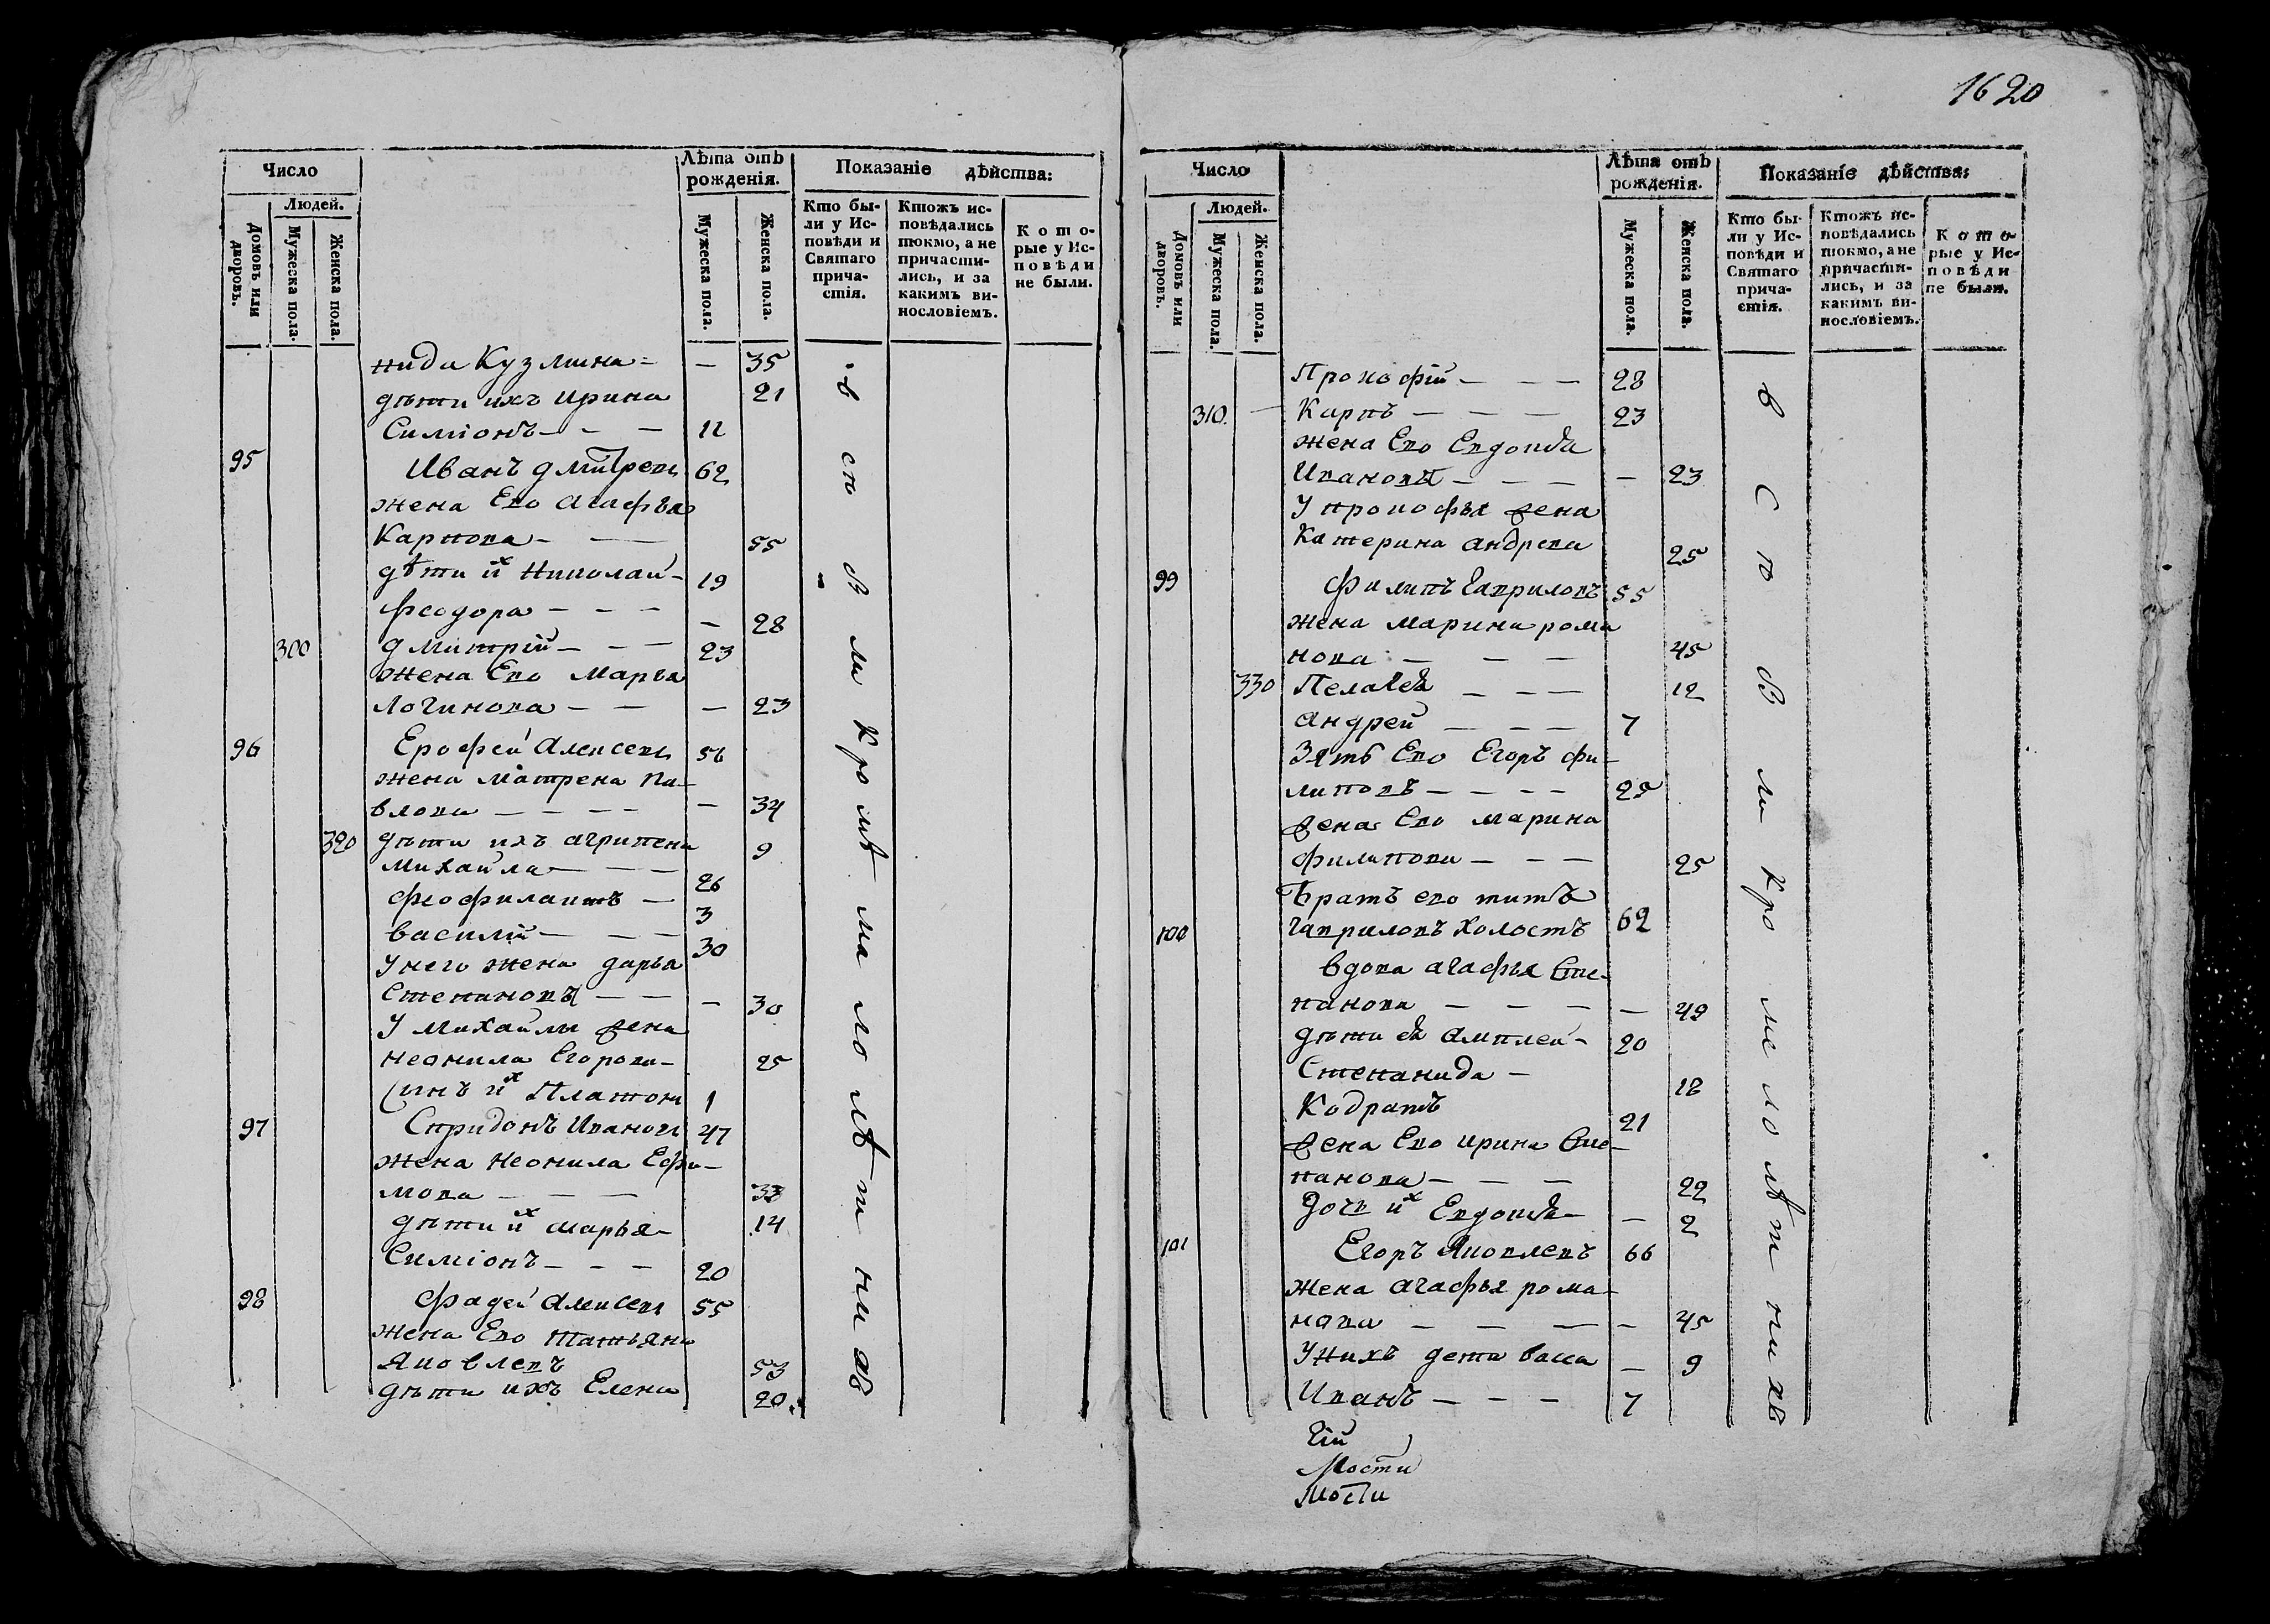 1620
Число
Людей.
Домовъ или дворовъ.
Мужеска пола.
Женска пола.
Лѣта отъ
рожденія.
Мужеска пола.
Женска пола.
Показаніе дѣйства:
Кто бы-
ли у Ис-
повѣди и
Святаго
прича-
стія.
Ктожъ ис-
повѣдались
токмо, а не
причасти-
лись, и за
какимъ ви-
нословіемъ.
Кото-
рые у Ис-
повѣди
не были.
нида Кузмина — 35
дѣти ихъ Ирина 21
Симіонъ — — 12
95 Иванъ Дмитревъ 62
жена Его Агафья
Карпова — — 55
дѣти их Николай 19
Феодора — — — 28
300 Дмитрій — — 23
жена Его Марья
Логинова — — — 23
96 Ерофей Алексевъ 56
жена Матрена Па-
влова — — — 34
320 дѣти ихъ Агрипена 9
Михайла — — 26
Феофилактъ — 3
Василій — — 30
У него жена Дарья
Степанова — — — 30
У Михайлы жена
Неонила Егорова — 25
Сынъ их Платонъ 1
97 Спридонъ Ивановъ 47
жена Неонила Ефи-
мова — — — 33
дѣти их Марья — 14
Симіонъ — — 20
98 Фадей Алексевъ 55
жена Его Татьяна
Яковлевъ 53
дѣти ихъ Елена 20
в ис по в ли кромѣ малолѣтнихъ
Число
Людей.
Домовъ или дворовъ.
Мужеска пола.
Женска пола.
Лѣта отъ
рожденія.
Мужеска пола.
Женска пола.
Показаніе дѣйства:
Кто бы-
ли у Ис-
повѣди и
Святаго
прича-
стія.
Ктожъ ис-
повѣдались
токмо, а не
причасти-
лись, и за
какимъ ви-
нословіемъ.
Кото-
рые у Ис-
повѣди
не были.
Прокофій — — — 28
310 Карпъ — — — 23
жена Его Евдокія
Иванова — — — 23
У Прокофья жена
Катерина Андрева 25
99 Филипъ Гавриловъ 55
жена Марина Рома
нова — — — 45
330 Пелагея — — — 12
Андрей — — — 7
Зять Его Егоръ Фи-
липовъ — — — 25
жена Его Марина
Филипова — — — 25
Братъ его Титъ
Гавриловъ холостъ 62
100 вдова Агафья Сте-
панова — — — 49
дѣти ея Амплей — 20
Степанида — 18
Кодратъ 21
жена Его Ирина Сте-
панова — — — 22
Дочь их Евдокія — 2
101 Егоръ Яковлевъ 66
жена Агафья Рома-
нова — — — 45
У нихъ дети Васса — 9
Иванъ — — — 7
гій
Мости
Мости